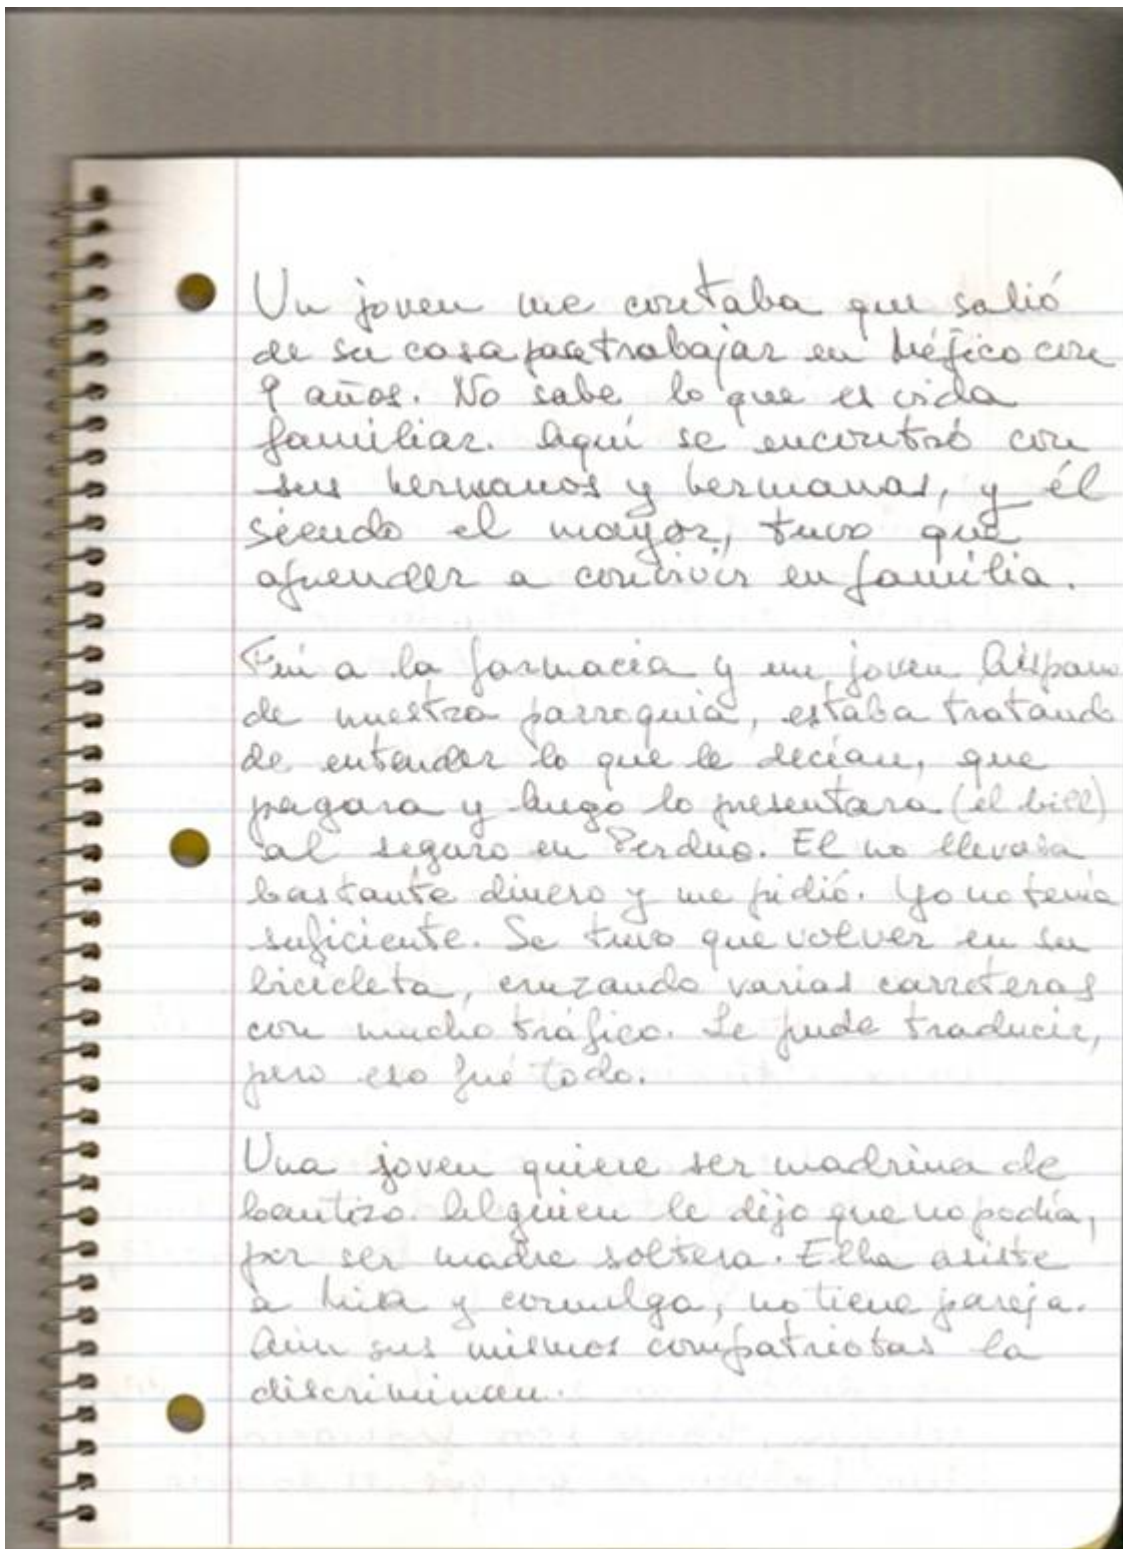 Un joven me contaba que salió
de su casa para trabajar en Méjico con
9 años. No sabe lo que es vida
familiar. Aquí se encontró con
sus hermanos y hermanas, y él
siendo el mayor, tuvo que
aprender a convivir en familia.
Fui a la farmacia y un joven hispano
de nuestra parroquia, estaba tratando
de entender lo que le decían, que
pagara y luego lo presentara (el bill)
al seguro en Perduo. El no llevaba
bastante dinero y me pidió. Yo no tenía
suficiente. Se tuvo que volver en su
bicicleta, cruzando varias carreteras
con mucho tráfico. Le pude traducir,
pero eso fué todo.
Una joven quiere ser madrina de
bautizo. Alguien le dijo que no podía,
por ser madre soltera. Ella asiste
a Misa y comulga, no tiene pareja.
Aún sus mismos compatriotas la
discriminan.